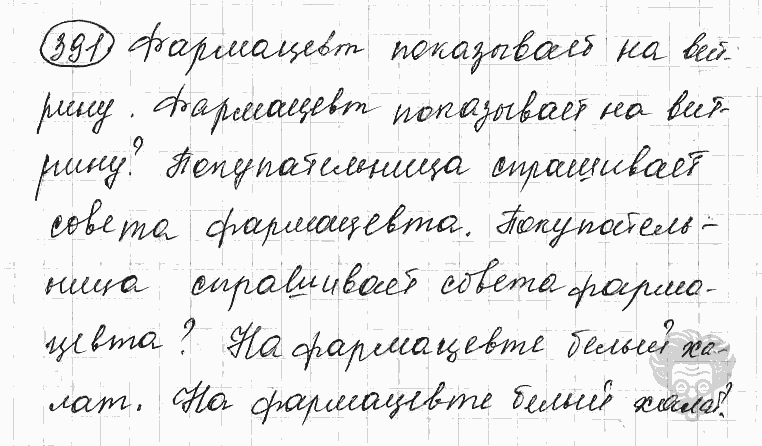 391 Фармацевт показывает на вит-
рину. Фармацевт показывает на вит-
рину? Покупательница спрашивает
совета фармацевта. Покупатель-
ница спрашивает совета фарма-
цевта? На фармацевте белый ха-
лат. На фармацевте белый халат?